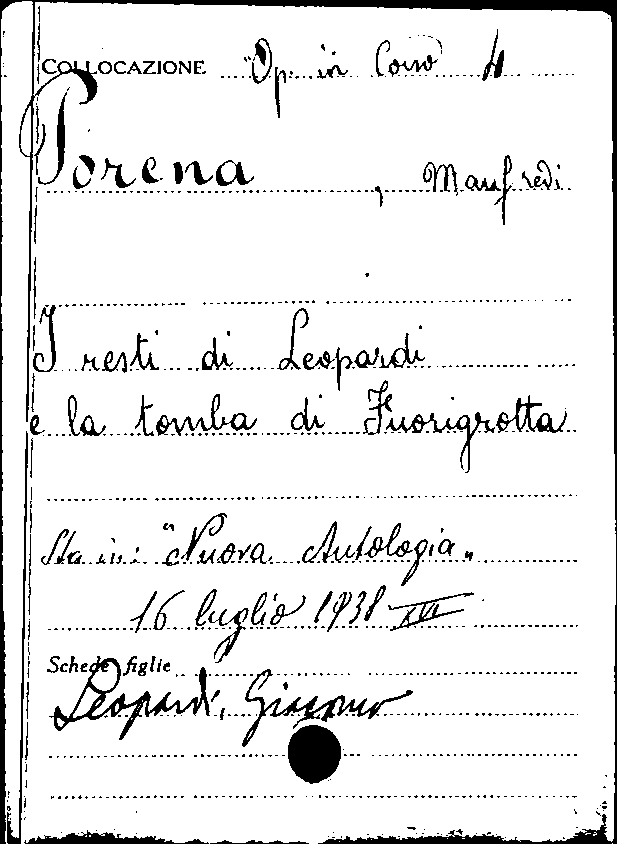 COLLOCAZIONE "Op. in Corso 4
Porena, Manfredi
I resti di Leopardi
e la tomba di Fuorigrotta
Sta in: "Nuova Antologia„
16 luglio 1938 XVI
Schede figlie
Leopardi, Giacomo